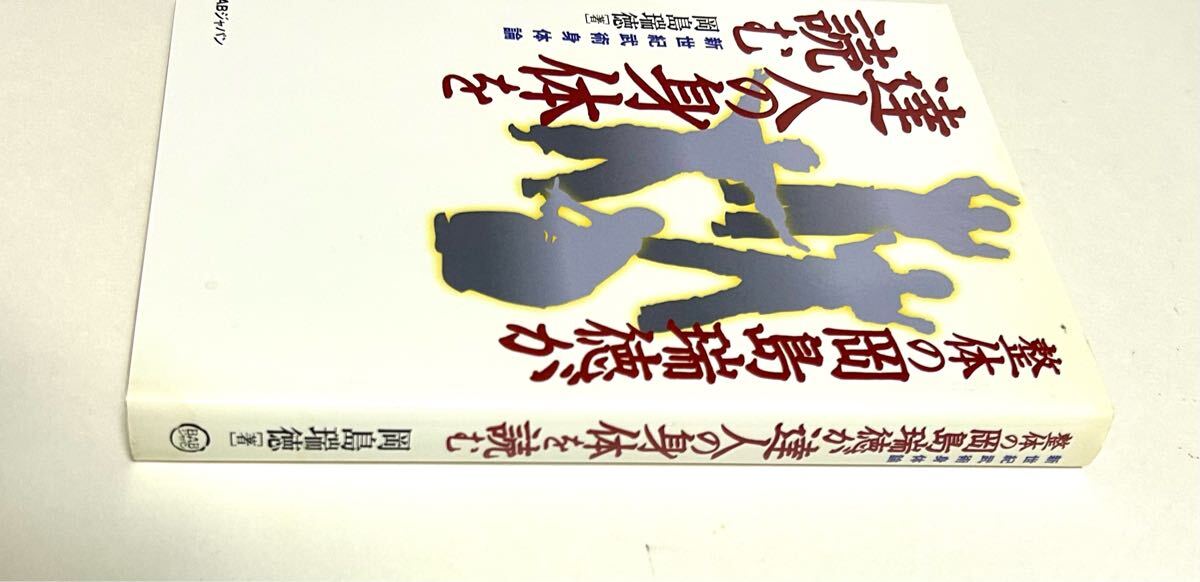 整体の岡島瑞徳が
達人の身体を
読む
新世紀武術身体論
岡島瑞徳[著]
BABジャパン
新世紀武術身体論
整体の岡島瑞徳が達人の身体を読む
岡島瑞徳[著]
BAB